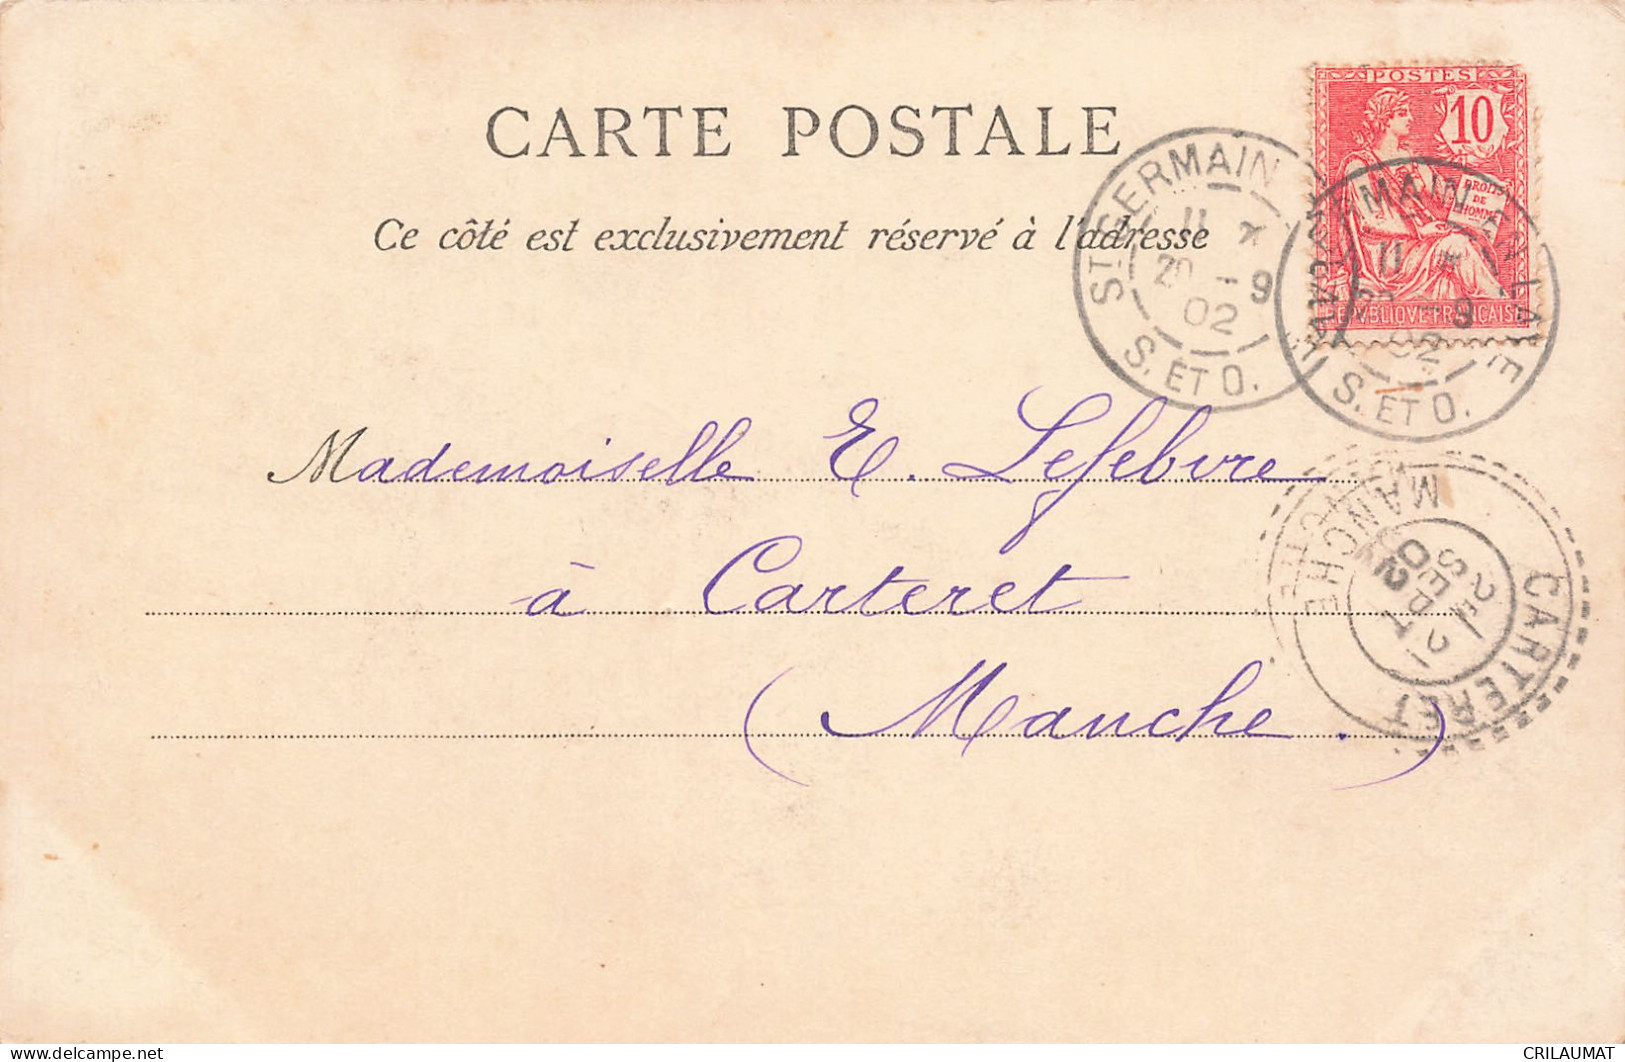 CARTE POSTALE
Ce côté est exclusivement réservé à l'adresse
POSTES
10
DROITS DE L'HOMME
REPVBLIQVE FRANCAISE
ST GERMAIN EN LAYE
11
20 -9
02
S. ET O.
MAIN EN LAYE
11
-9
02
S. ET O.
Mademoiselle E. Lefebvre
à Carteret
(Manche.)
CARTERET
MANCHE
2E
21
SEPT
02
delcampe.net
CRILAUMAT